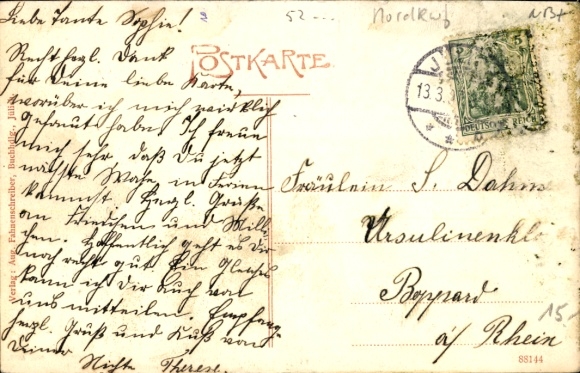 Liebe Tante Sophie!
Recht herzl. Dank
für Deine liebe Karte,
worüber ich mich wirklich
gefreut habe. Ich freue
mich sehr, daß Du jetzt
nächste Woche in Ferien
kommst. Herzl. Grüße
an Friedchen und Milli-
chen. Hoffentlich geht es Dir
noch recht gut. Ein Gleiches
kann ich Dir auch von
uns mitteilen. Empfang
herzl. Gruß und Kuß von
Deiner
Nichte Therese.
52
Nordkw
POSTKARTE
13.3.
DEUTSCHES REICH
Fräulein S. Dahm
Ursulinenkl
Boppard
a/ Rhein
15-
88144
Verlag: Aug. Fahnenschreiber, Buchhdlg., Jülich